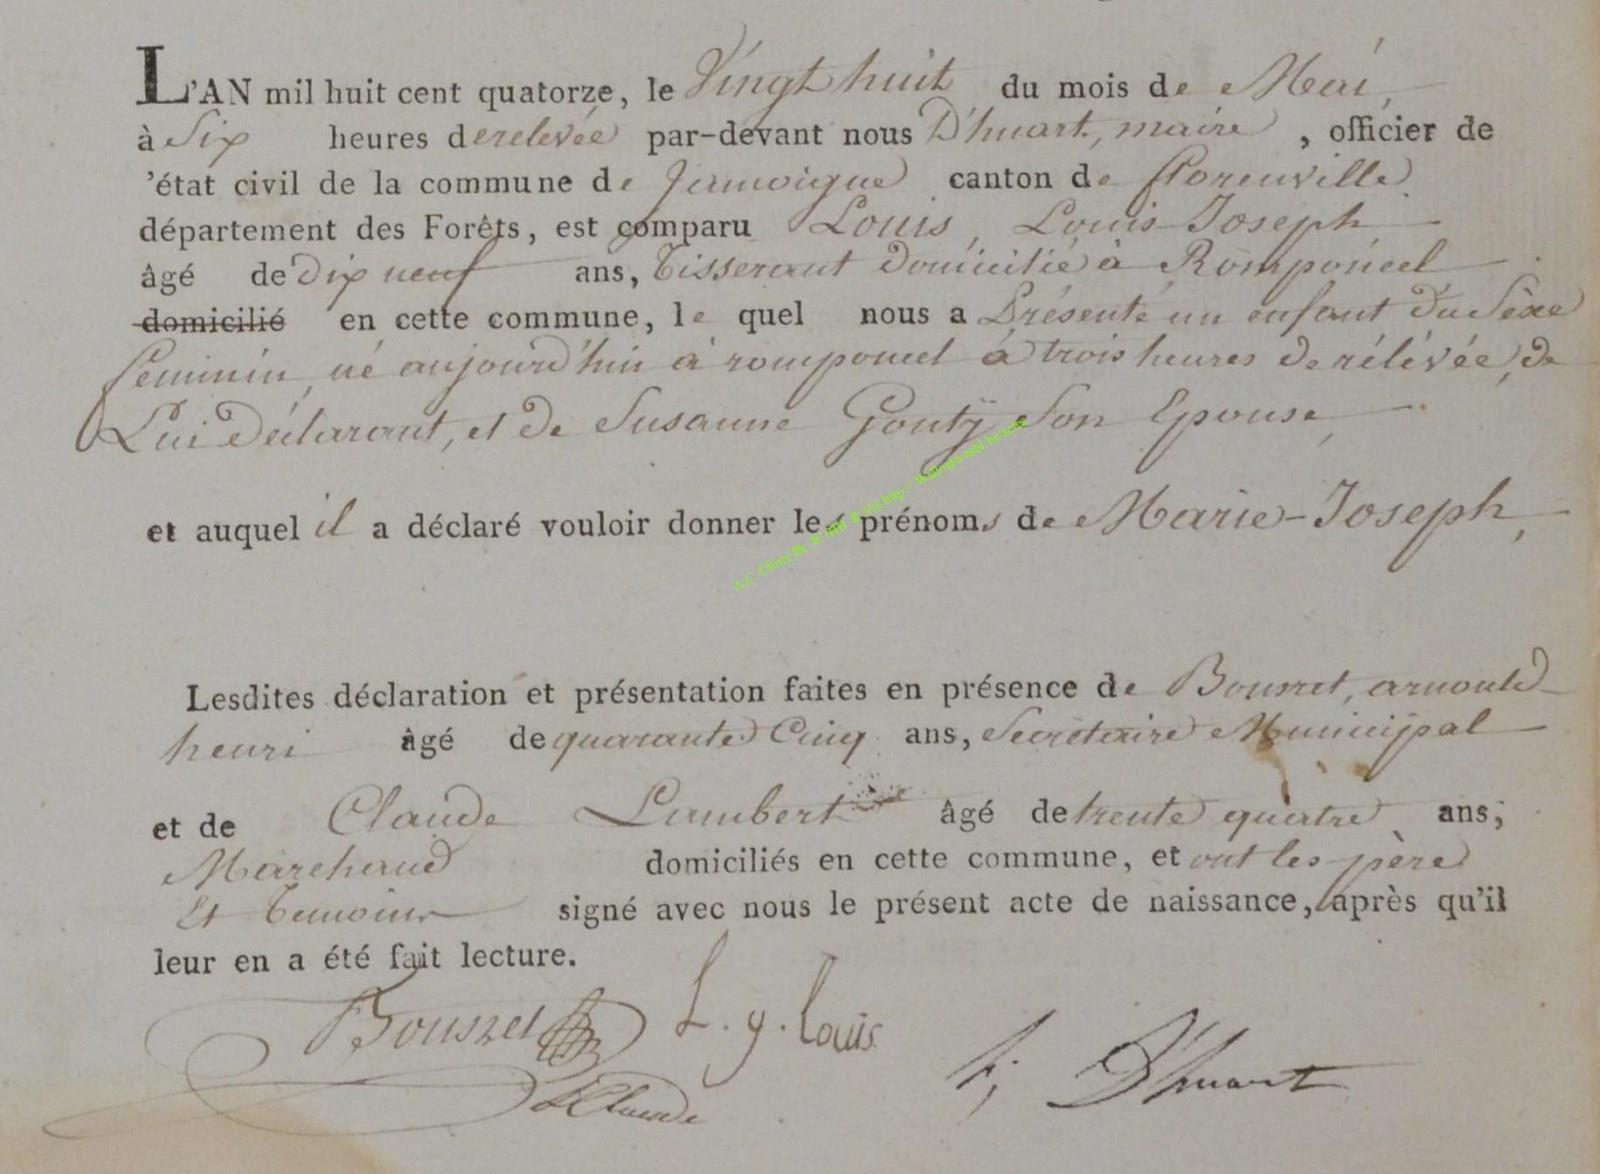 L'AN mil huit cent quatorze, le Vingt huit du mois de Mai,
à Six heures de relevée par-devant nous D'huart, maire, officier de
'état civil de la commune de Jamoigne canton de florenville
département des Forêts, est comparu Louis, Louis-Joseph
âgé de Dix neuf ans, Tisserant Domicilié à Romponcel
domicilié en cette commune, le quel nous a Présenté un enfant du Sèxe
feminin, né aujourd'hui à romponcel à trois heures de rélévée, de
Lui Déclarant, et de Susanne Goutÿ Son Epouse,
et auquel il a déclaré vouloir donner les prénoms de Marie-Joseph,
Lesdites déclaration et présentation faites en présence de arnould
henri âgé de quarante Cinq ans, Secrétaire Municipal
et de Claude Lambert âgé de trente quatre ans,
Marchand domiciliés en cette commune, et ont les père
Et Temoins signé avec nous le présent acte de naissance, après qu'il
leur en a été fait lecture.
L. y. Louis
D'huart
Claude